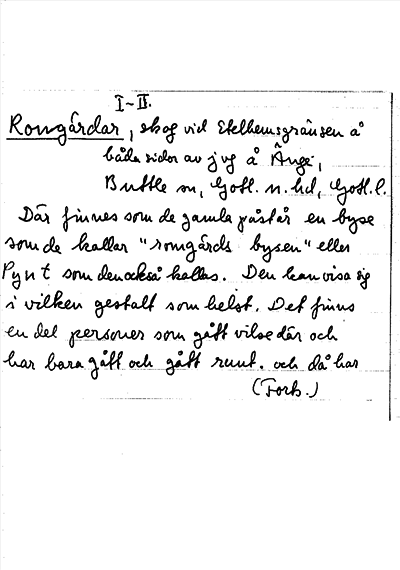 I–II.
Romgårdar, skog vid Etelhemsgränsen å
båda sidor av jvg å Änge,
Buttle sn, Gotl. n. hd, Gotl. l.
Där finnes som de gamla påstår en byse
som de kallar "romgårds bysen" eller
Pynt som den också kallas. Den kan visa sig
i vilken gestalt som helst. Det finns
en del personer som gått vilse där och
har bara gått och gått runt. och då har
(Forts.)